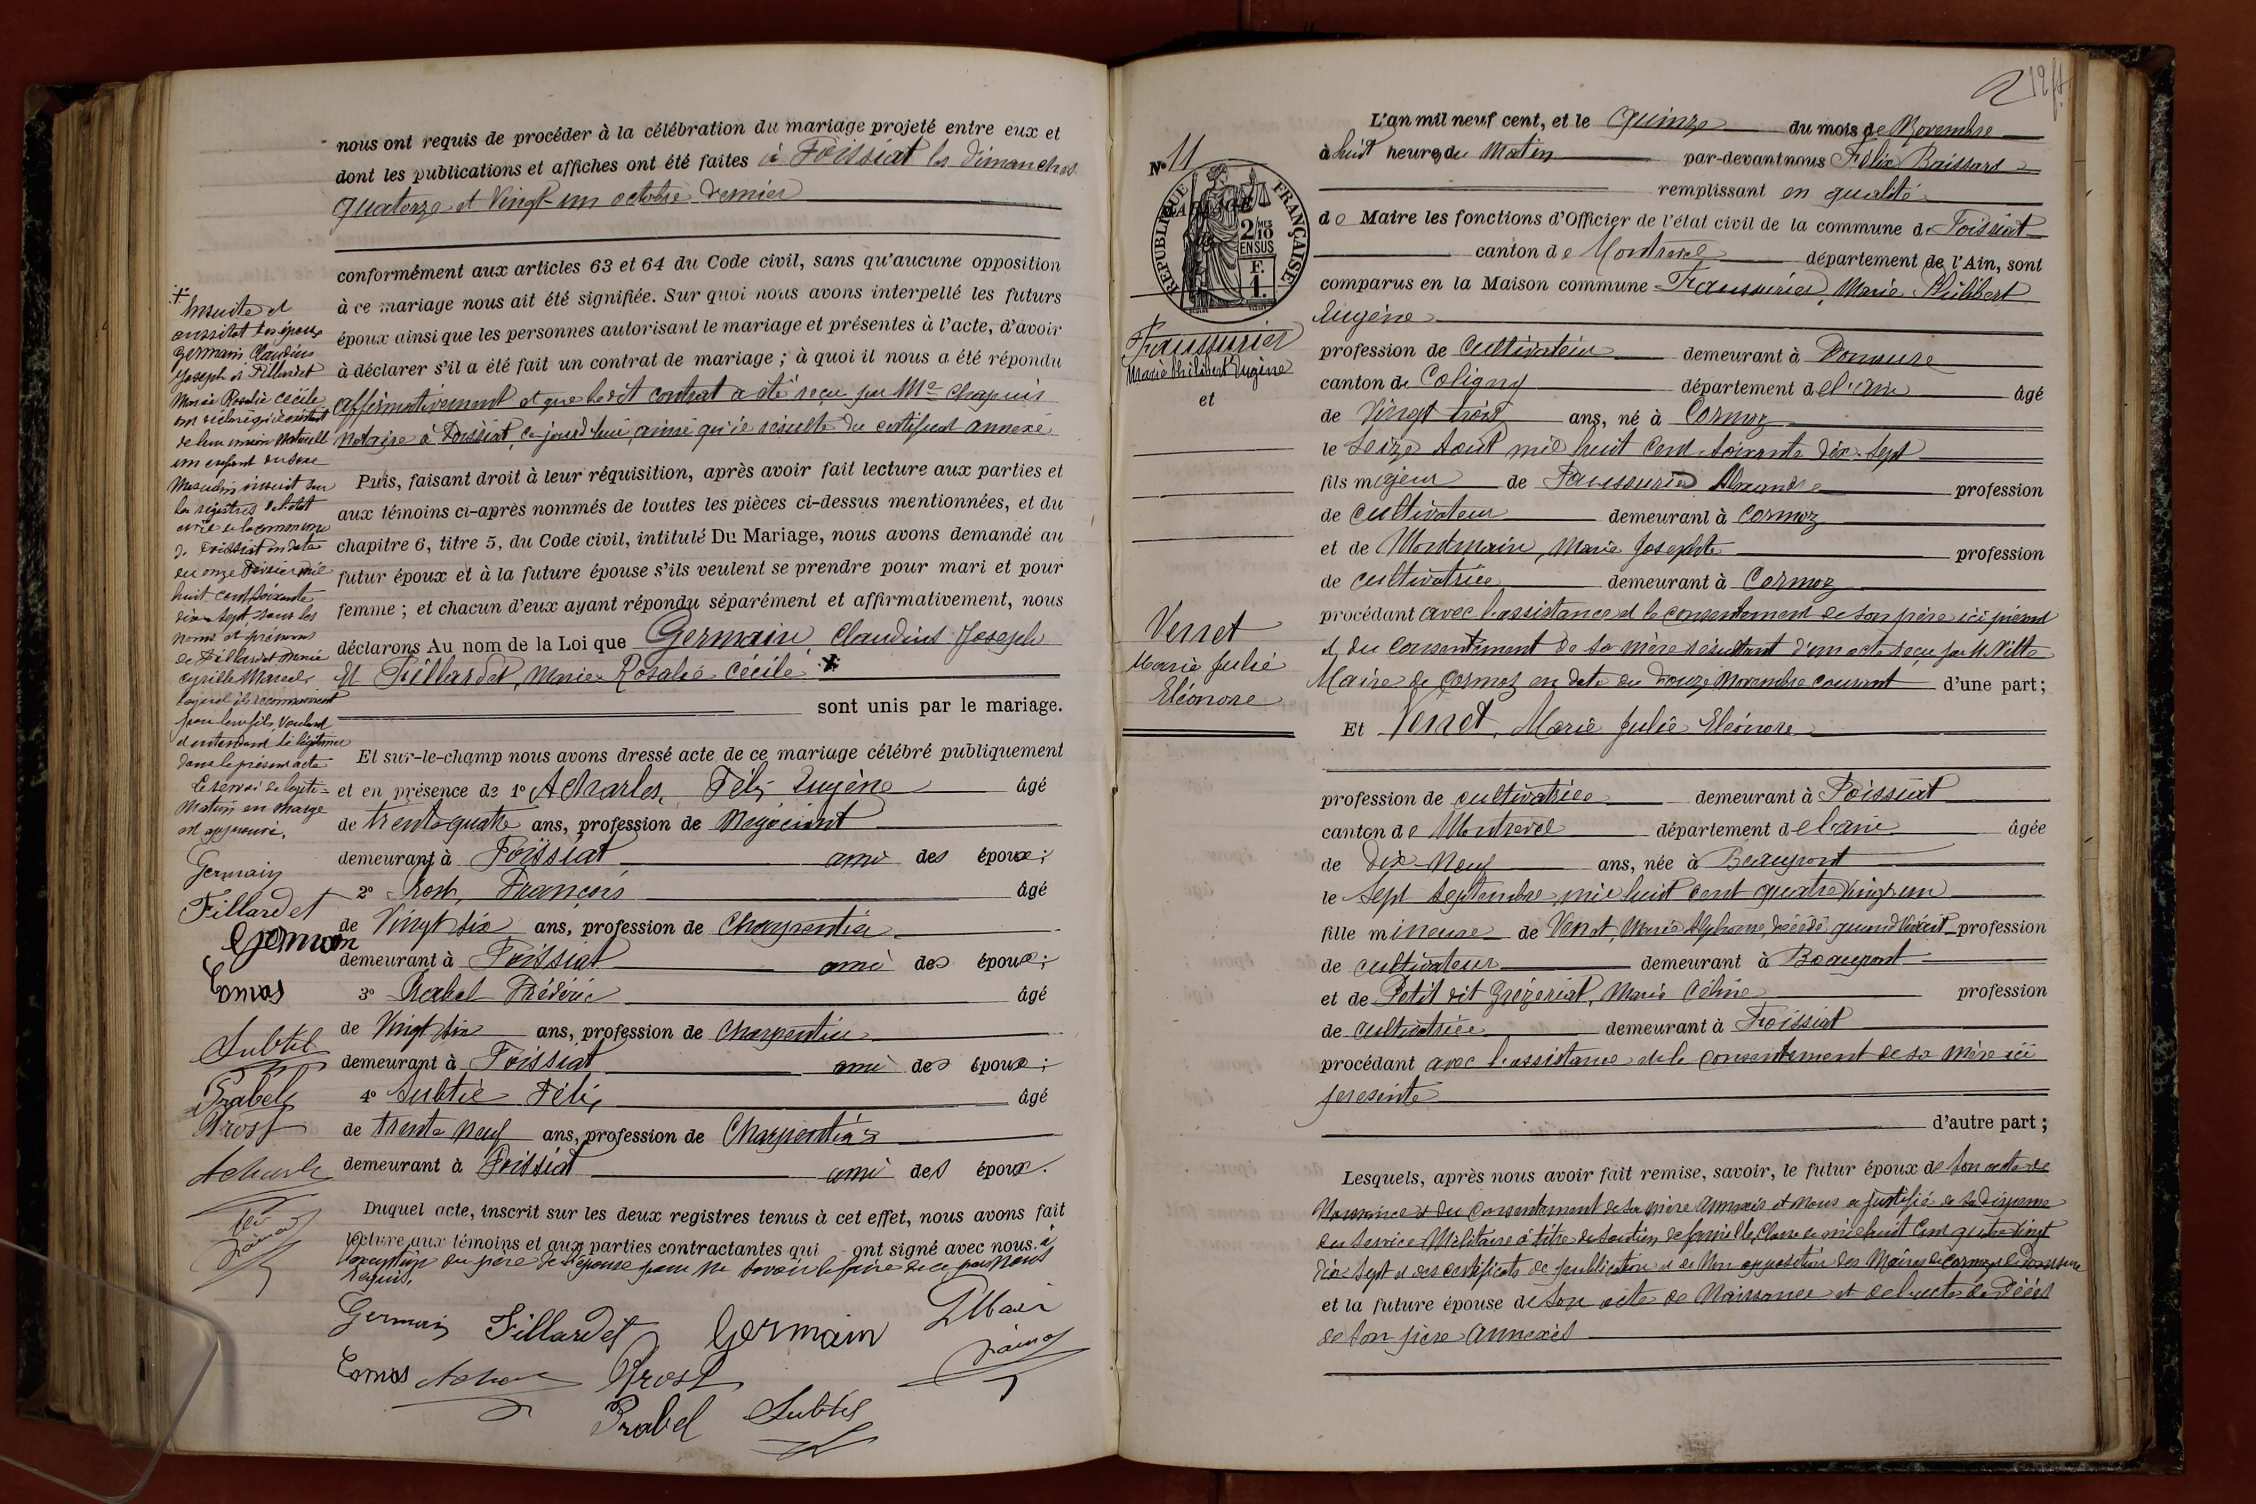 nous ont requis de procéder à la célébration du mariage projeté entre eux et
dont les publications et affiches ont été faites à Foissiat les dimanches
quatorze et Vingt-un octobre dernier
conformément aux articles 63 et 64 du Code civil, sans qu'aucune opposition
à ce mariage nous ait été signifiée. Sur quoi nous avons interpellé les futurs
époux ainsi que les personnes autorisant le mariage et présentes à l'acte, d'avoir
à déclarer s'il a été fait un contrat de mariage ; à quoi il nous a été répondu
affirmativement et que ledit contrat a été reçu par Me Chapuis
notaire à Foissiat, ce jourd'hui, ainsi qu'il résulte du certificat annexé
Puis, faisant droit à leur réquisition, après avoir fait lecture aux parties et
aux témoins ci-après nommés de toutes les pièces ci-dessus mentionnées, et du
chapitre 6, titre 5, du Code civil, intitulé Du Mariage, nous avons demandé au
futur époux et à la future épouse s'ils veulent se prendre pour mari et pour
femme ; et chacun d'eux ayant répondu séparément et affirmativement, nous
déclarons Au nom de la Loi que Germain, Claudius Joseph
Et Fillardet, Marie Rosalie Cécile +
sont unis par le mariage.
Et sur-le-champ nous avons dressé acte de ce mariage célébré publiquement
et en présence de 1° Acharles, Félix Eugène âgé
de trente quatre ans, profession de Négociant
demeurant à Foissiat ami des époux ;
2° Prost, François âgé
de Vingt six ans, profession de Charpentier
demeurant à Foissiat ami des époux ;
3° Prabel Frédéric âgé
de Vingt six ans, profession de Charpentier
demeurant à Foissiat ami des époux ;
4° Subtil Félix âgé
de trente neuf ans, profession de Charpentier
demeurant à Foissiat ami des époux.
Duquel acte, inscrit sur les deux registres tenus à cet effet, nous avons fait
lecture aux témoins et aux parties contractantes qui ont signé avec nous à
l'exception du père de l'épouse pour ne savoir le faire de ce par nous
requis.
Germain Fillardet Germain
Comas Prost
Prabel Subtil
+
Ensuite et
aussitôt les époux
Germain Claudius
Joseph et Fillardet
Marie Rosalie Cécile
ont déclaré qu'il existait
de leur union naturelle
un enfant du sexe
Masculin inscrit sur
les registres de l'état
civil de la commune
de Foissiat en date
du onze février mil
huit cent soixante
dix-sept, sous les
noms et prénoms
de Fillardet Marie
Cyrille Marcel,
lequel ils reconnaissent
pour leur fils, Voulant
et entendant le légitimer
dans le présent acte
Le renvoi de légiti-
mation en marge
est approuvé.
Germain
Fillardet
Germain
Comas
Subtil
Prabel
Prost
Acharles
L'an mil neuf cent, et le Quinze du mois de Novembre
à huit heures du Matin par-devant nous Félix Boissard
remplissant en qualité
de Maire les fonctions d'Officier de l'état civil de la commune de Foissiat
canton de Montrevel département de l'Ain, sont
comparus en la Maison commune Faussurier, Marie Philibert
Eugène
profession de Cultivateur demeurant à Domsure
canton de Coligny département de l'ain âgé
de Vingt trois ans, né à Cormoz
le Seize Août mil huit Cent soixante dix-sept
fils majeur de Faussurier profession
de Cultivateur demeurant à Cormoz
et de Montmain, Marie Josephte profession
de cultivatrice demeurant à Cormoz
procédant avec l'assistance et le consentement de son père ici présent
et du consentement de sa mère résultant d'un acte reçu par M. Vitte
Maire de Cormoz en date du Douze Novembre courant d'une part ;
Et Verret, Marie Julie Eléonore
profession de cultivatrice demeurant à Foissiat
canton de Montrevel département de l'ain âgée
de Dix-Neuf ans, née à Beaupont
le Sept Septembre mil huit cent quatre vingt un
fille mineure de Verret, Marie Alphonse, décédé quand vivait profession
de cultivateur demeurant à Beaupont
et de Petit dit Grézeriat, Marie Céline profession
de cultivatrice demeurant à Foissiat
procédant avec l'assistance et le consentement de sa mère ici
présente
d'autre part ;
Lesquels, après nous avoir fait remise, savoir, le futur époux de son acte de
Naissance et du Consentement de sa mère annexés et nous a justifié de sa dispense
du Service Militaire à titre de soutien de famille, Classe de mil huit Cent quatre vingt
dix sept et des certificats de publication et de Non opposition des Maires de Cormoz et Domsure
et la future épouse de son acte de Naissance et de l'acte de Décès
de son père annexés
N° 11
MARIAGE
RÉPUBLIQUE FRANÇAISE
2/10MES
EN SUS
F.
1.
Faussurier
Marie Philibert Eugène
et
Verret
Marie Julie
Eléonore